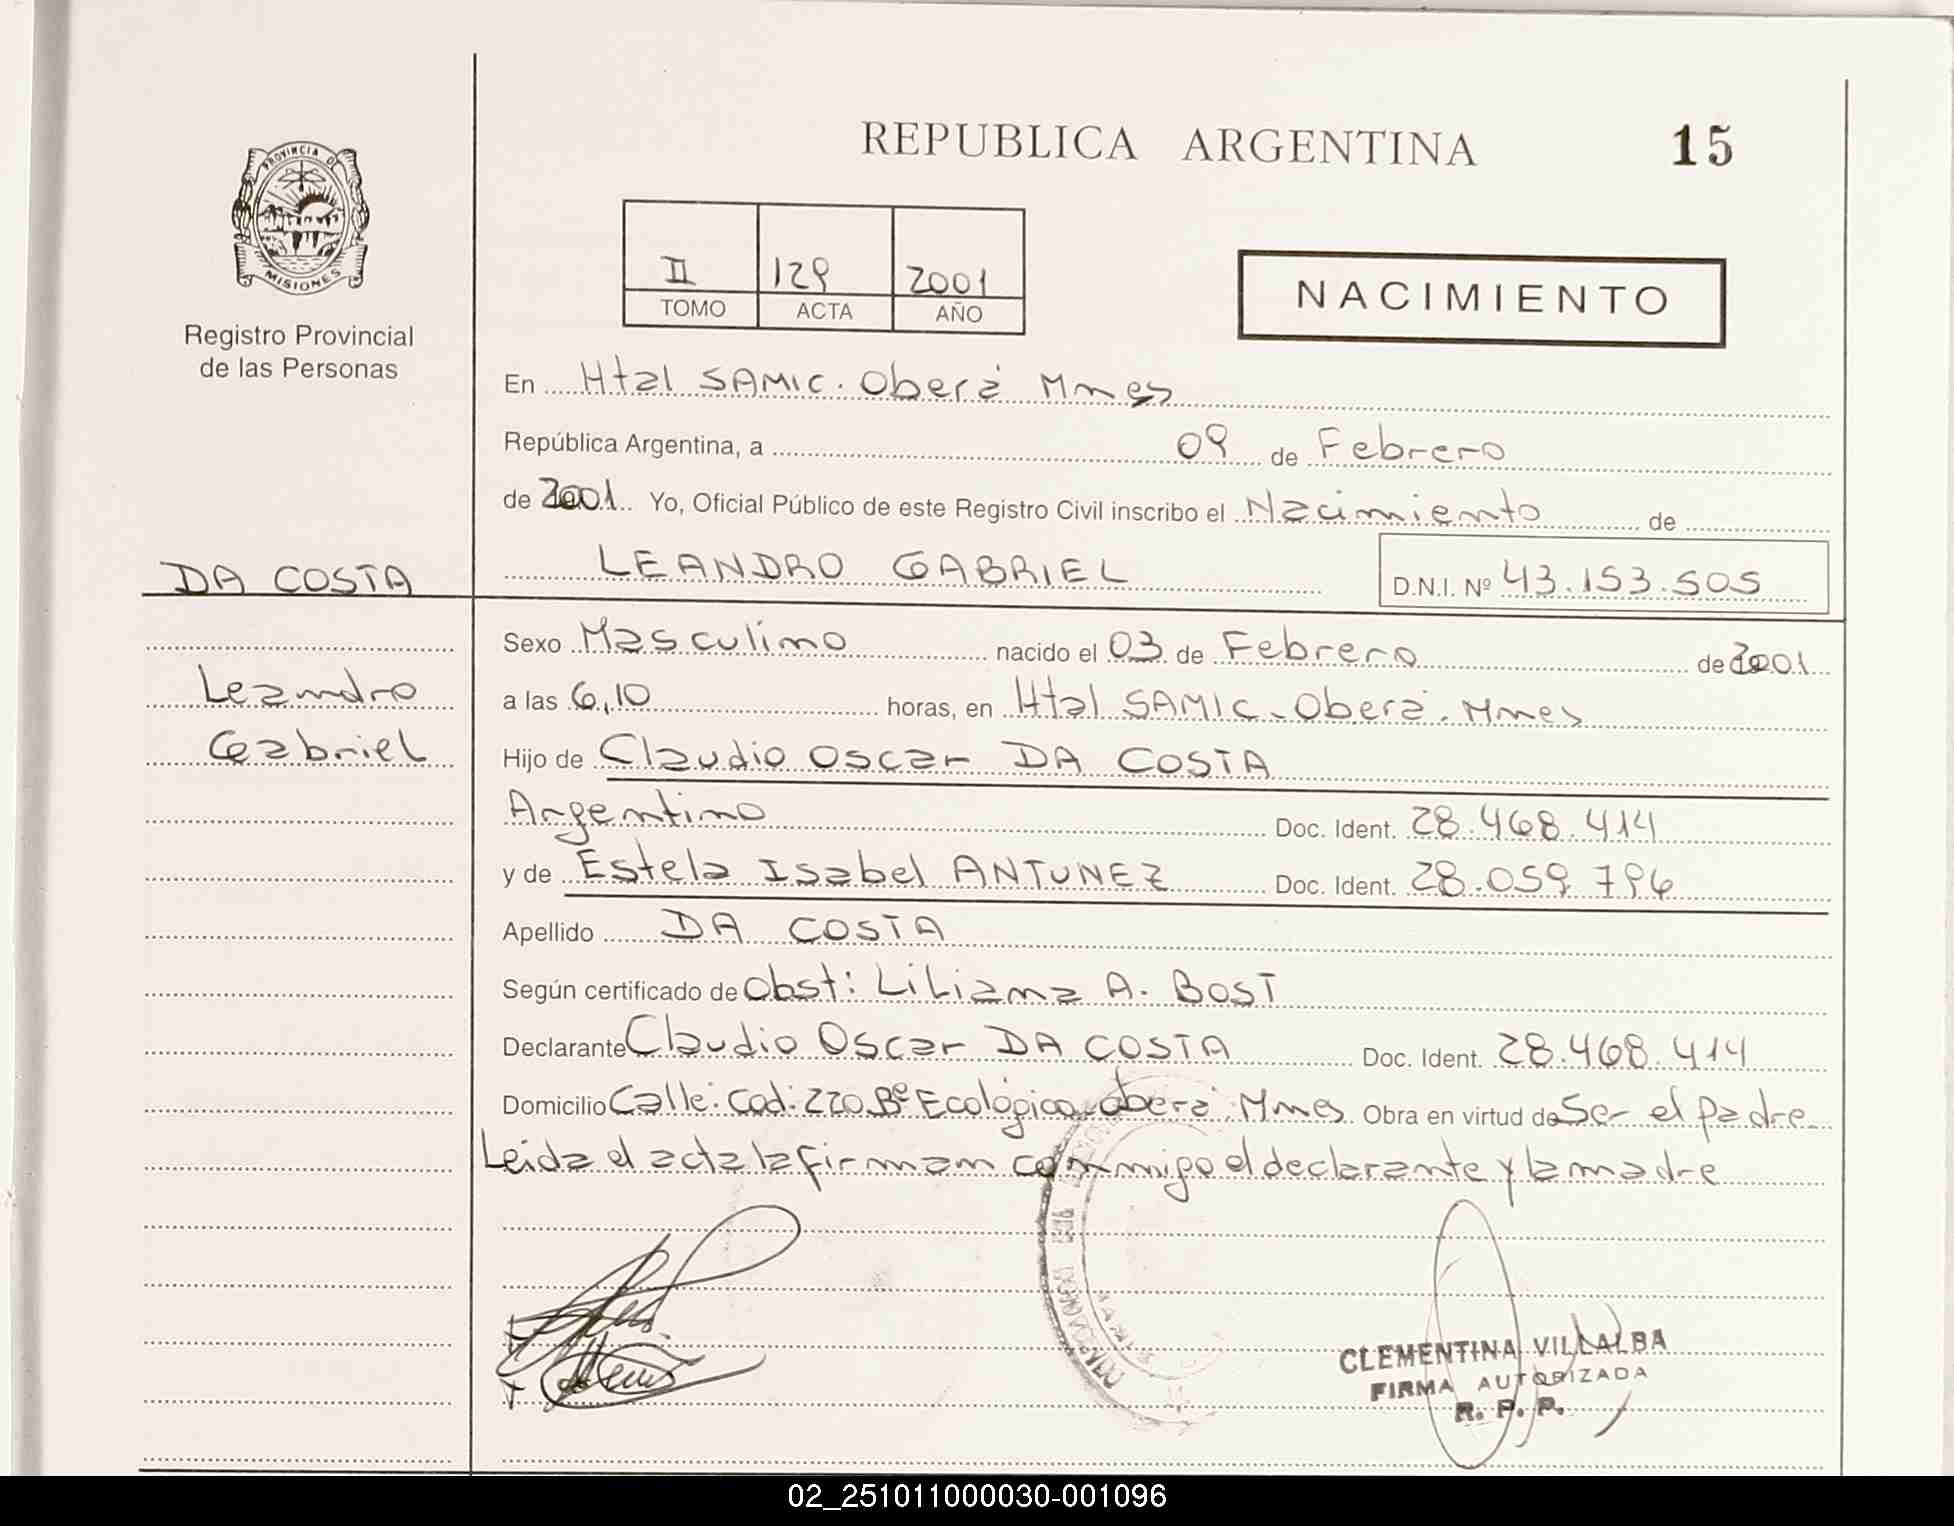 REPUBLICA ARGENTINA 15
PROVINCIA D
MISIONES
Registro Provincial
de las Personas
II 129 2001
TOMO ACTA AÑO
NACIMIENTO
En Htal SAMIC. Oberá Mnes
República Argentina, a 09 de Febrero
de 2001 Yo, Oficial Público de este Registro Civil inscribo el Nacimiento de
DA COSTA LEANDRO GABRIEL D.N.I. Nº 43.153.505
Sexo Masculino nacido el 03 de Febrero de 2001
Leandro a las 6,10 horas, en Htal SAMIC. Oberá. Mnes
Gabriel Hijo de Claudio Oscar DA COSTA
Argentino Doc. Ident. 28.468.414
y de Estela Isabel ANTUNEZ Doc. Ident. 28.059.794
Apellido DA COSTA
Según certificado de Obst: Liliana A. BOST
Declarante Claudio Oscar DA COSTA Doc. Ident. 28.468.414
Domicilio Calle: Cod: 220 Bº Ecológico. Oberá. Mnes Obra en virtud de Ser el padre
Leida el acta la firman conmigo el declarante y la madre
CLEMENTINA VILLALBA
FIRMA AUTORIZADA
R. P. P.
02_251011000030-001096